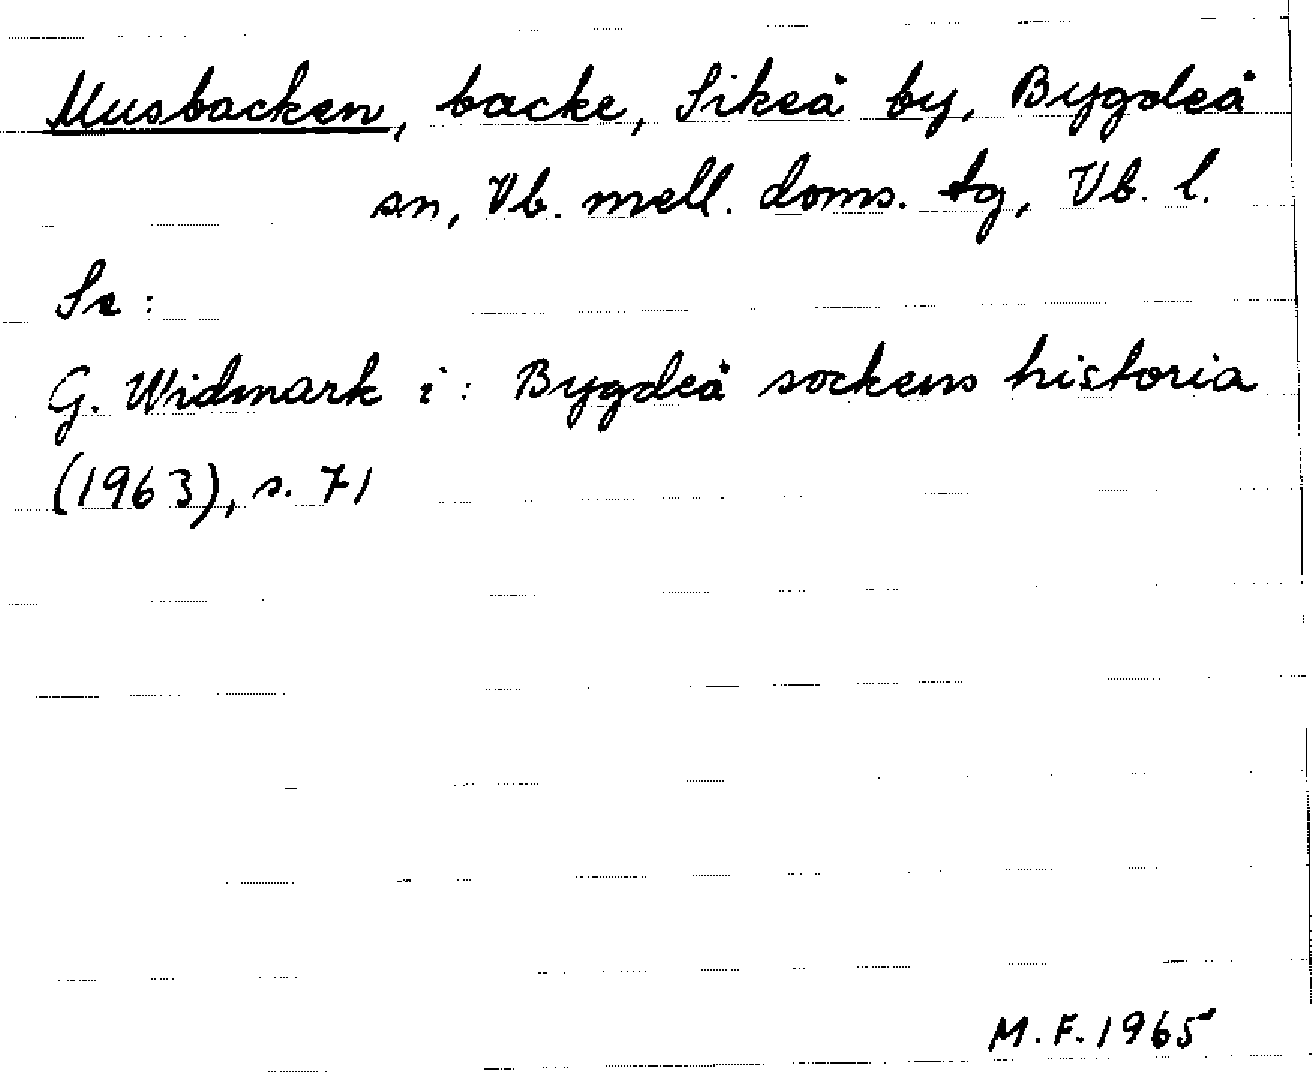 Musbacken, backe, Sikeå by, Bygdeå
sn, Vb. mell. doms. tg, Vb. l.
Se:
G. Widmark i: Bygdeå sockens historia
(1963), s. 71
M.F. 1965